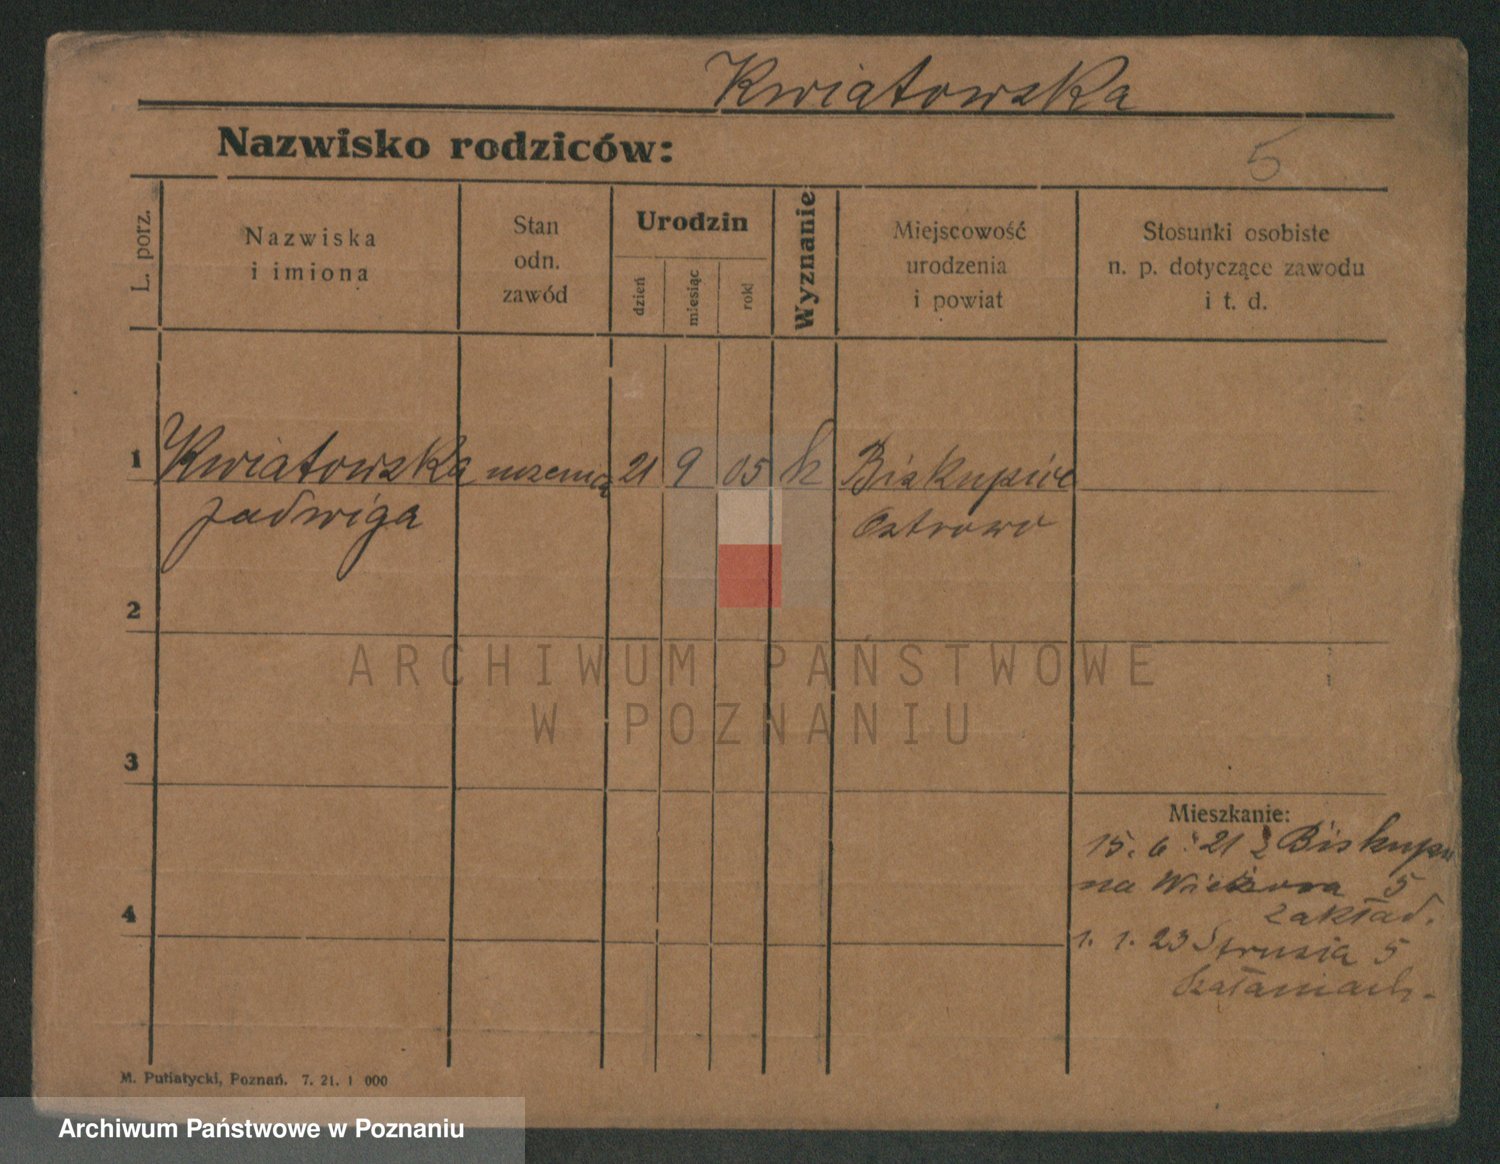 Kwiatowska
Nazwisko rodziców:
5
L. porz.
Nazwiska
i imiona
Stan
odn.
zawód
Urodzin
dzień
miesiąc
rok
Wyznanie
Miejscowość
urodzenia
i powiat
Stosunki osobiste
n. p. dotyczące zawodu
i t. d.
1 Kwiatowska 21 9 05 k Biskupice
Jadwiga Ostrowo
2
ARCHIWUM PAŃSTWOWE
W POZNANIU
3
Mieszkanie:
15. 6. 21 z
na 5
4 zakład.
1. 1. 23 Strusia 5
M. Putiatycki, Poznań. 7. 21. 1 000
Archiwum Państwowe w Poznaniu